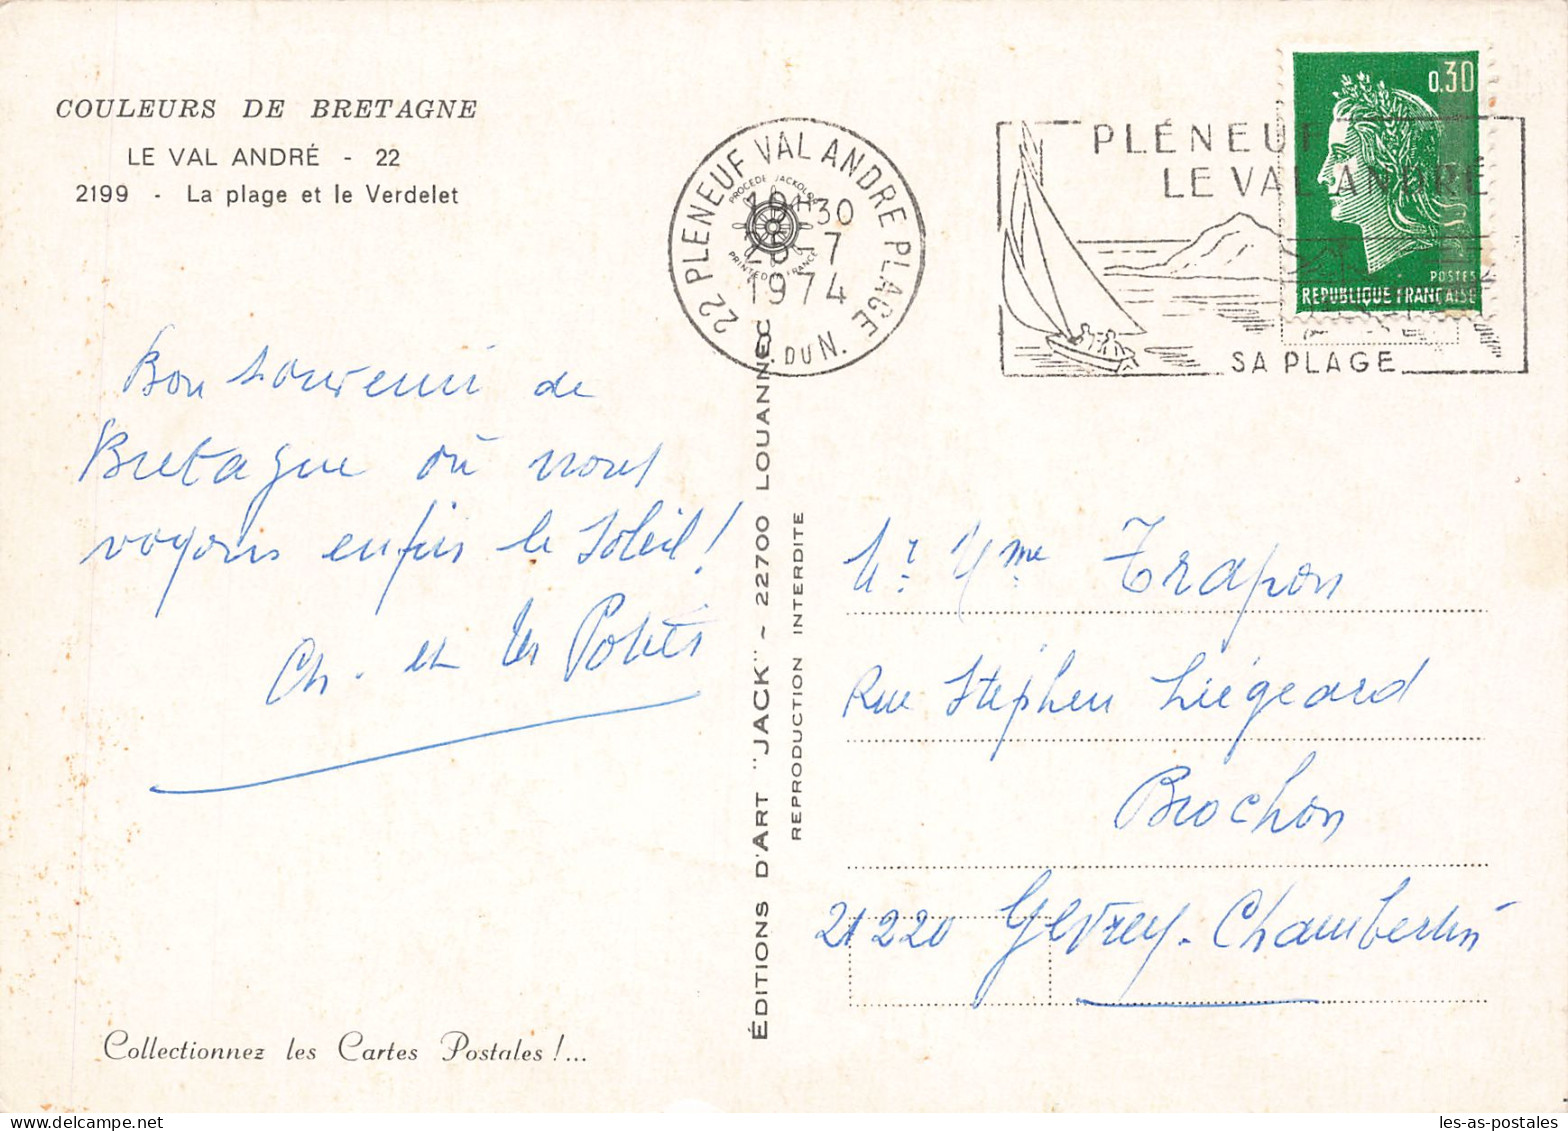 COULEURS DE BRETAGNE
LE VAL ANDRÉ - 22
2199 - La plage et le Verdelet
Bon souvenir de
Bretagne où nous
voyons enfin le Soleil!
Ch. et les Potiers
Collectionnez les Cartes Postales !...
22 PLENEUF VAL ANDRE PLAGE
C. DU N.
H30
-7
1974
PROCEDE JACKOLOR
PRINTED FRANCE
ÉDITIONS D'ART "JACK" - 22700 LOUANNEC
REPRODUCTION INTERDITE
PLÉNEUF
LE VAL ANDRÉ
SA PLAGE
0,30
POSTES
REPUBLIQUE FRANCAISE
Mr Mme Trapon
Rue Stéphen Liégeard
Brochon
21220 Gevrey-Chambertin
les-as-postales